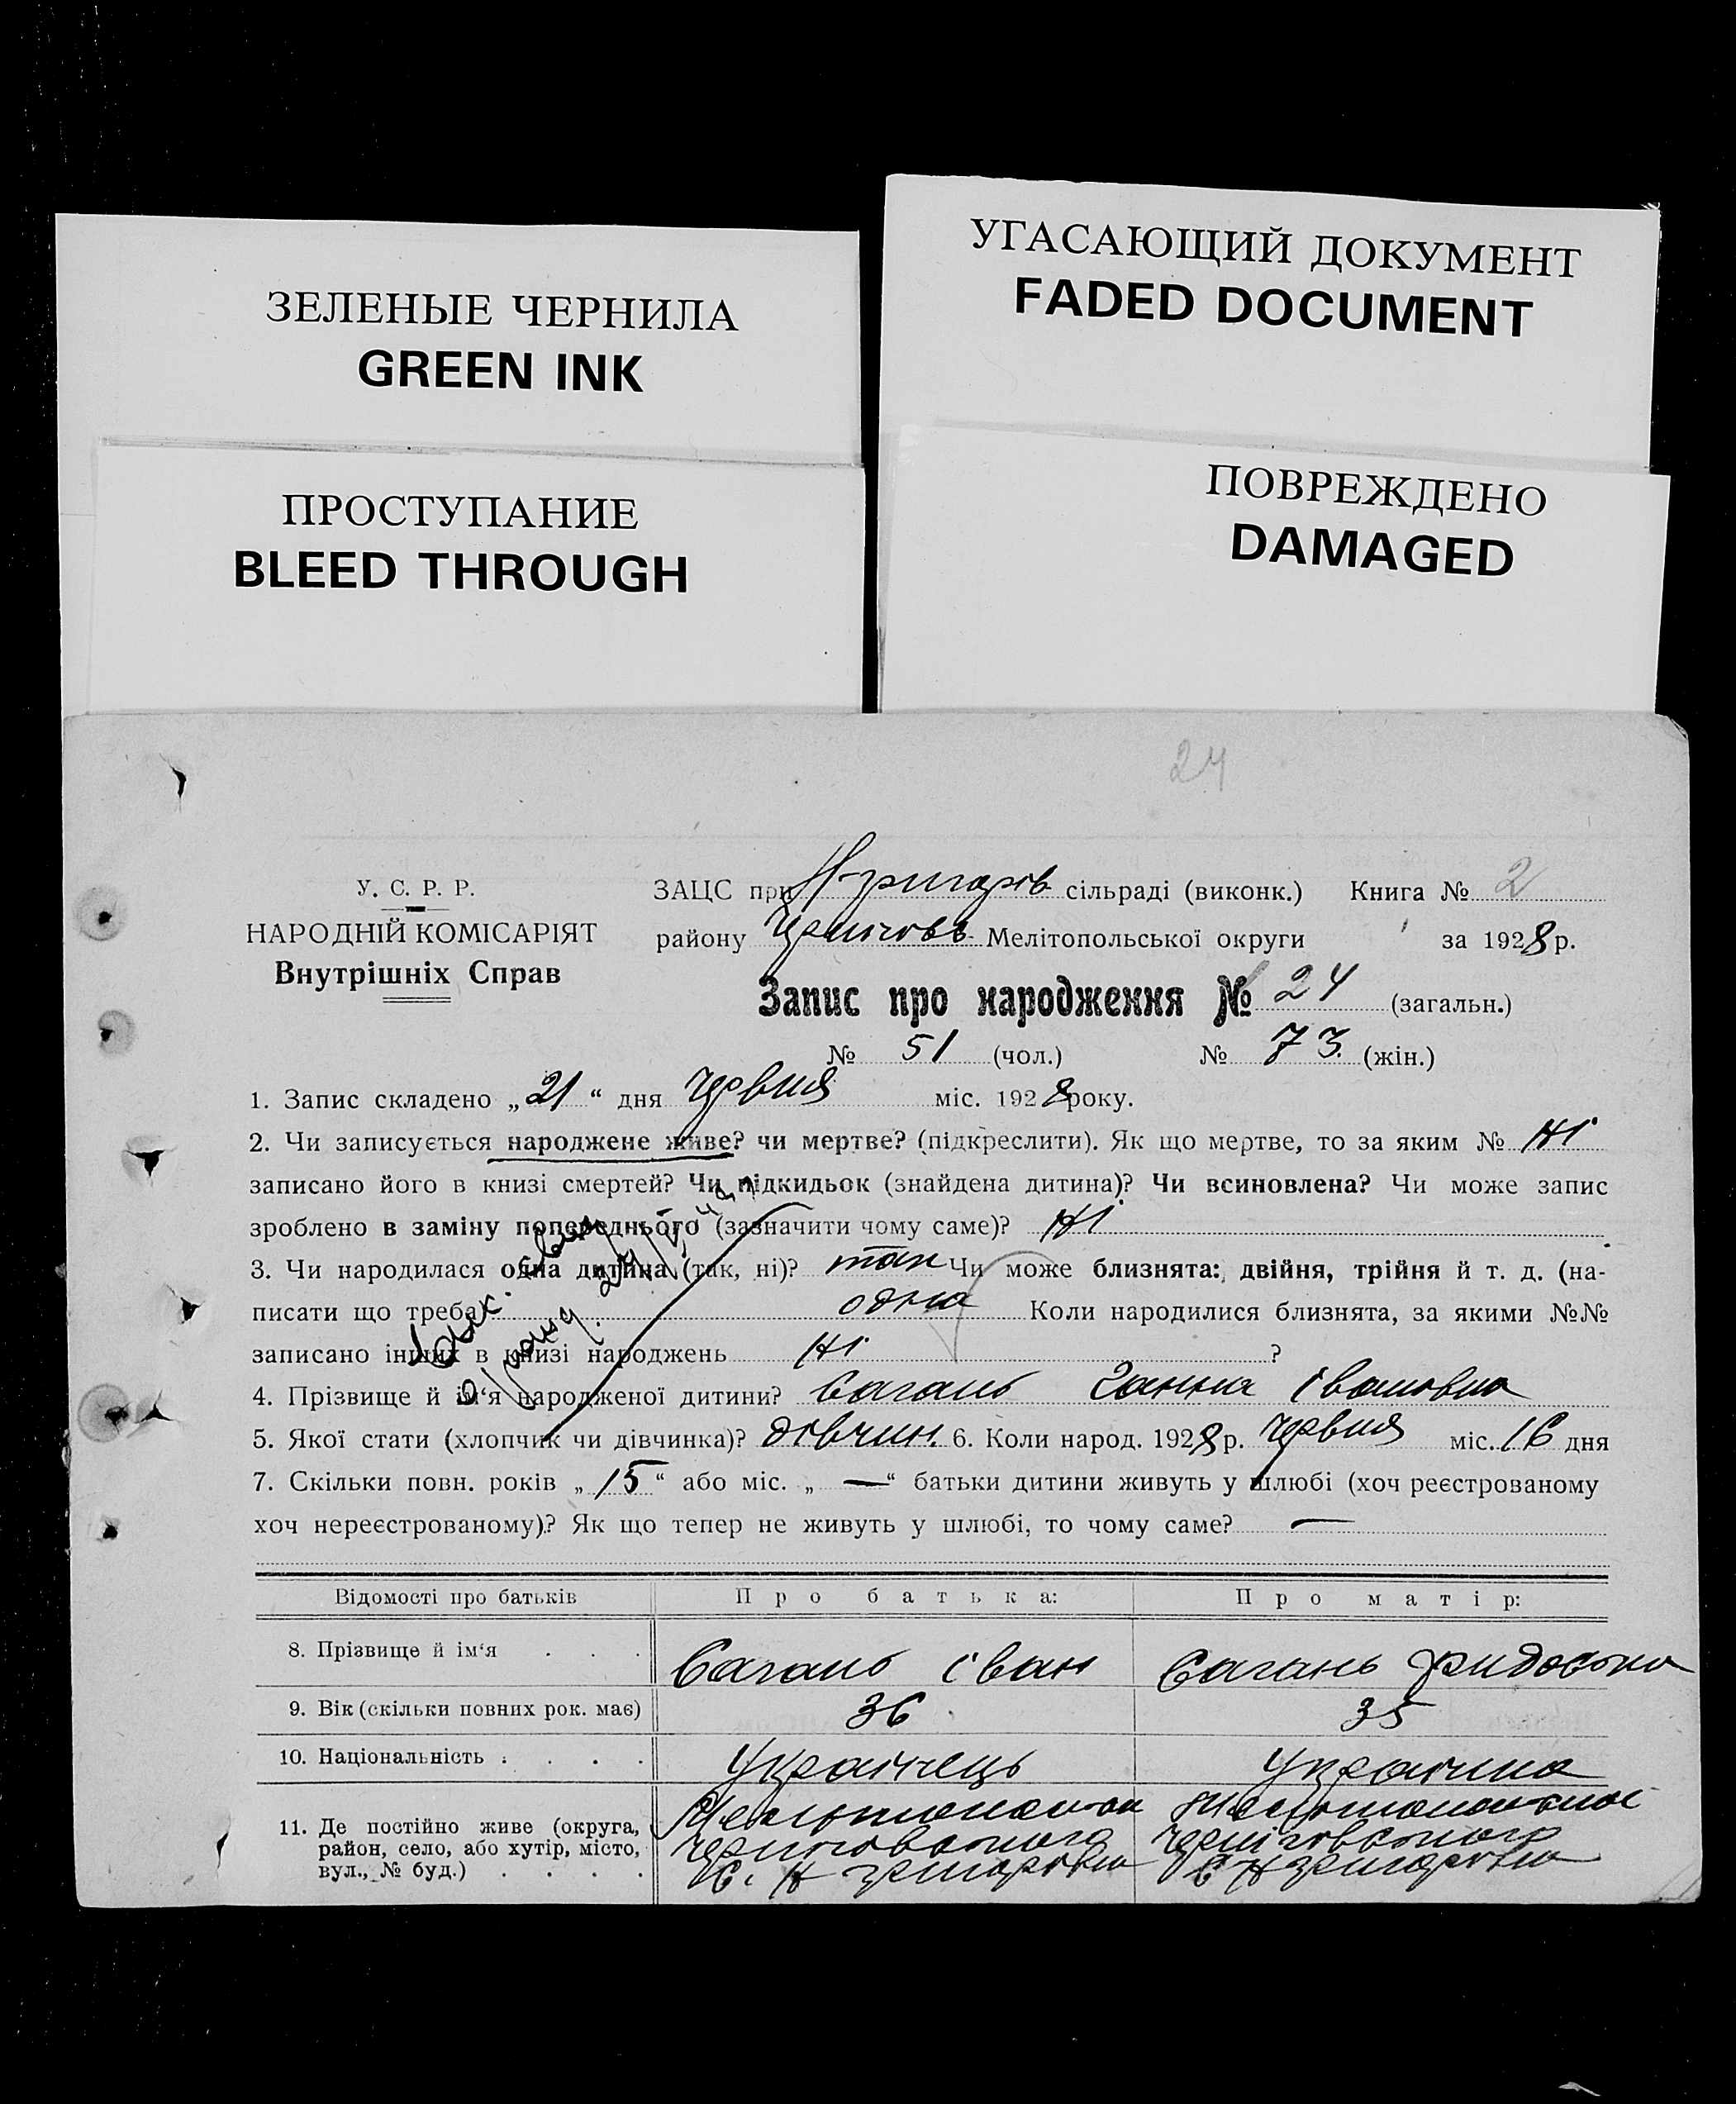 ЗЕЛЕНЫЕ ЧЕРНИЛА
GREEN INK
УГАСАЮЩИЙ ДОКУМЕНТ
FADED DOCUMENT
ПРОСТУПАНИЕ
BLEED THROUGH
ПОВРЕЖДЕНО
DAMAGED
24
У. С. Р. Р.
НАРОДНІЙ КОМІСАРІЯТ
Внутрішніх Справ
ЗАЦС при Н-григорів сільраді (виконк.) Книга № 2
району Мелітопольської округи за 1928 р.
Запис про народження № 24 (загальн.)
№ 51 (чол.) № 73 (жін.)
1. Запис складено „21“ дня червня міс. 1928 року.
2. Чи записується народжене живе? чи мертве? (підкреслити). Як що мертве, то за яким № ні
записано його в книзі смертей? Чи підкидьок (знайдена дитина)? Чи всиновлена? Чи може запис
зроблено в заміну попереднього (зазначити чому саме)? ні
3. Чи народилася одна дитина (так, ні)? так Чи може близнята: двійня, трійня й т. д. (на-
писати що треба) одна Коли народилися близнята, за якими №№
записано інших в книзі народжень ні ?
4. Прізвище й ім‘я народженої дитини? Сагань Ганна Івановна
5. Якої стати (хлопчик чи дівчинка)? дівчин. 6. Коли народ. 1928 р. червня міс. 16 дня
7. Скільки повн. років „15“ або міс. „—“ батьки дитини живуть у шлюбі (хоч реєстрованому
хоч нереєстрованому)? Як що тепер не живуть у шлюбі, то чому саме? —
Відомості про батьків Про батька: Про матір:
8. Прізвище й ім‘я . . . Сагань Іван Сагань
9. Вік (скільки повних рок. має) 36 35
10. Національність . . . . Українець Українка
11. Де постійно живе (округа,
район, село, або хутір, місто,
вул., № буд.) . . . .
Черніговського Черніговського
С. Н григорівка С Н григорівка